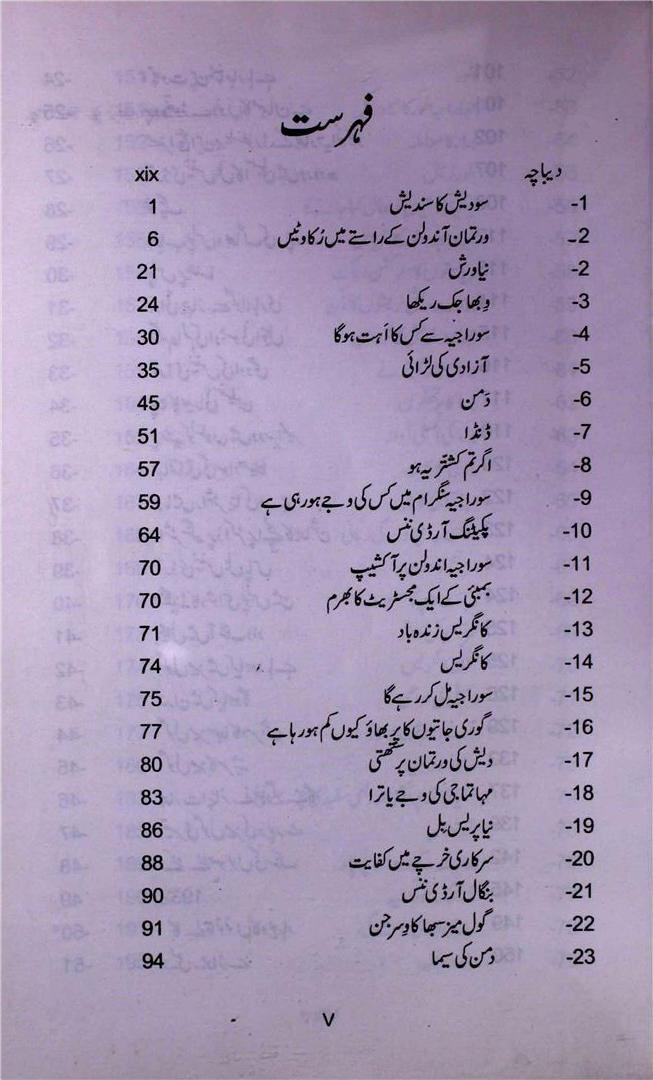 فہرست
دیباچہ xix
1- سودیش کا سندیش 1
2- ورتمان آندولن کے راستے میں رُکاوٹیں 6
2- نیا ورش 21
3- وِبھاجک ریکھا 24
4- سوراجیہ سے کس کا اَہت ہوگا 30
5- آزادی کی لڑائی 35
6- دَمن 45
7- ڈنڈا 51
8- اگر تم کشتریہ ہو 57
9- سوراجیہ سنگرام میں کس کی وجے ہو رہی ہے 59
10- پکیٹنگ آرڈی ننس 64
11- سوراجیہ اندولن پر آکشیپ 70
12- بمبئی کے ایک مجسٹریٹ کا بھرم 70
13- کانگریس زندہ باد 71
14- کانگریس 74
15- سوراجیہ مل کر رہے گا 75
16- گوری جاتیوں کا پربھاؤ کیوں کم ہو رہا ہے 77
17- دیش کی ورتمان پرستھتی 80
18- مہاتما جی کی وجے یاترا 83
19- نیا پریس بِل 86
20- سرکاری خرچے میں کفایت 88
21- بنگال آرڈی ننس 90
22- گول میز سبھا کا وسرجن 91
23- دَمن کی سیما 94
v